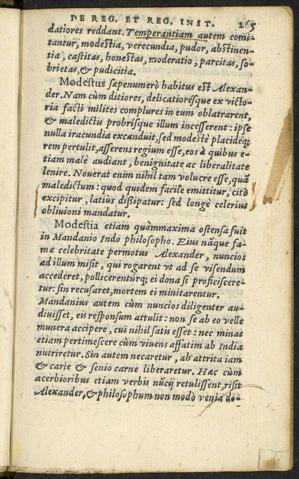 DE REG. ET REG. INST. 265
datiores reddant. Temperantiam autem comi-
tantur, modestia, verecundia, pudor, abstinen-
tia, castitas, honestas, moderatio, parcitas, so-
brietas, & pudicitia.
Modestus sæpenumerò habitus est Alexan-
der. Nam cùm ditiores, delicatioresque ex victo-
ria facti milites complures in eum oblatrarent,
& maledictis probrisque illum incesserent: ipse
nulla iracundia excanduit, sed modestè placideq;
rem pertulit, asserens regium esse, eos à quibus e-
tiam malè audiant, benignitate ac liberalitate
lenire. Noverat enim nihil tam volucre esse, quàm
maledictum: quod quidem facilè emittitur, citò
excipitur, latiùs dissipatur: sed longè celerius
oblivioni mandatur.
Modestia etiam quàmmaxima ostensa fuit
in Mandanio Indo philosopho. Eius nãque fa-
mæ celebritate permotus Alexander, nuncios
ad illum misit, qui rogarent vt ad se visendum
accederet, pollicerenturq; ei dona si proficiscere-
tur: sin recusaret, mortem ei minitarentur.
Mandanius autem cùm nuncios diligenter au-
diuisset, eis responsum attulit: non se ab eo velle
munera accipere, cui nihil satis esset: nec minas
etiam pertimescere cùm viuens affatim ab India
nutriretur. Sin autem necaretur, ab attrita iam
& carie & senio carne liberaretur. Hæc cùm
acerbioribus etiam verbis nũcij retulissent, risit
Alexander, & philosophum non modò venia do-